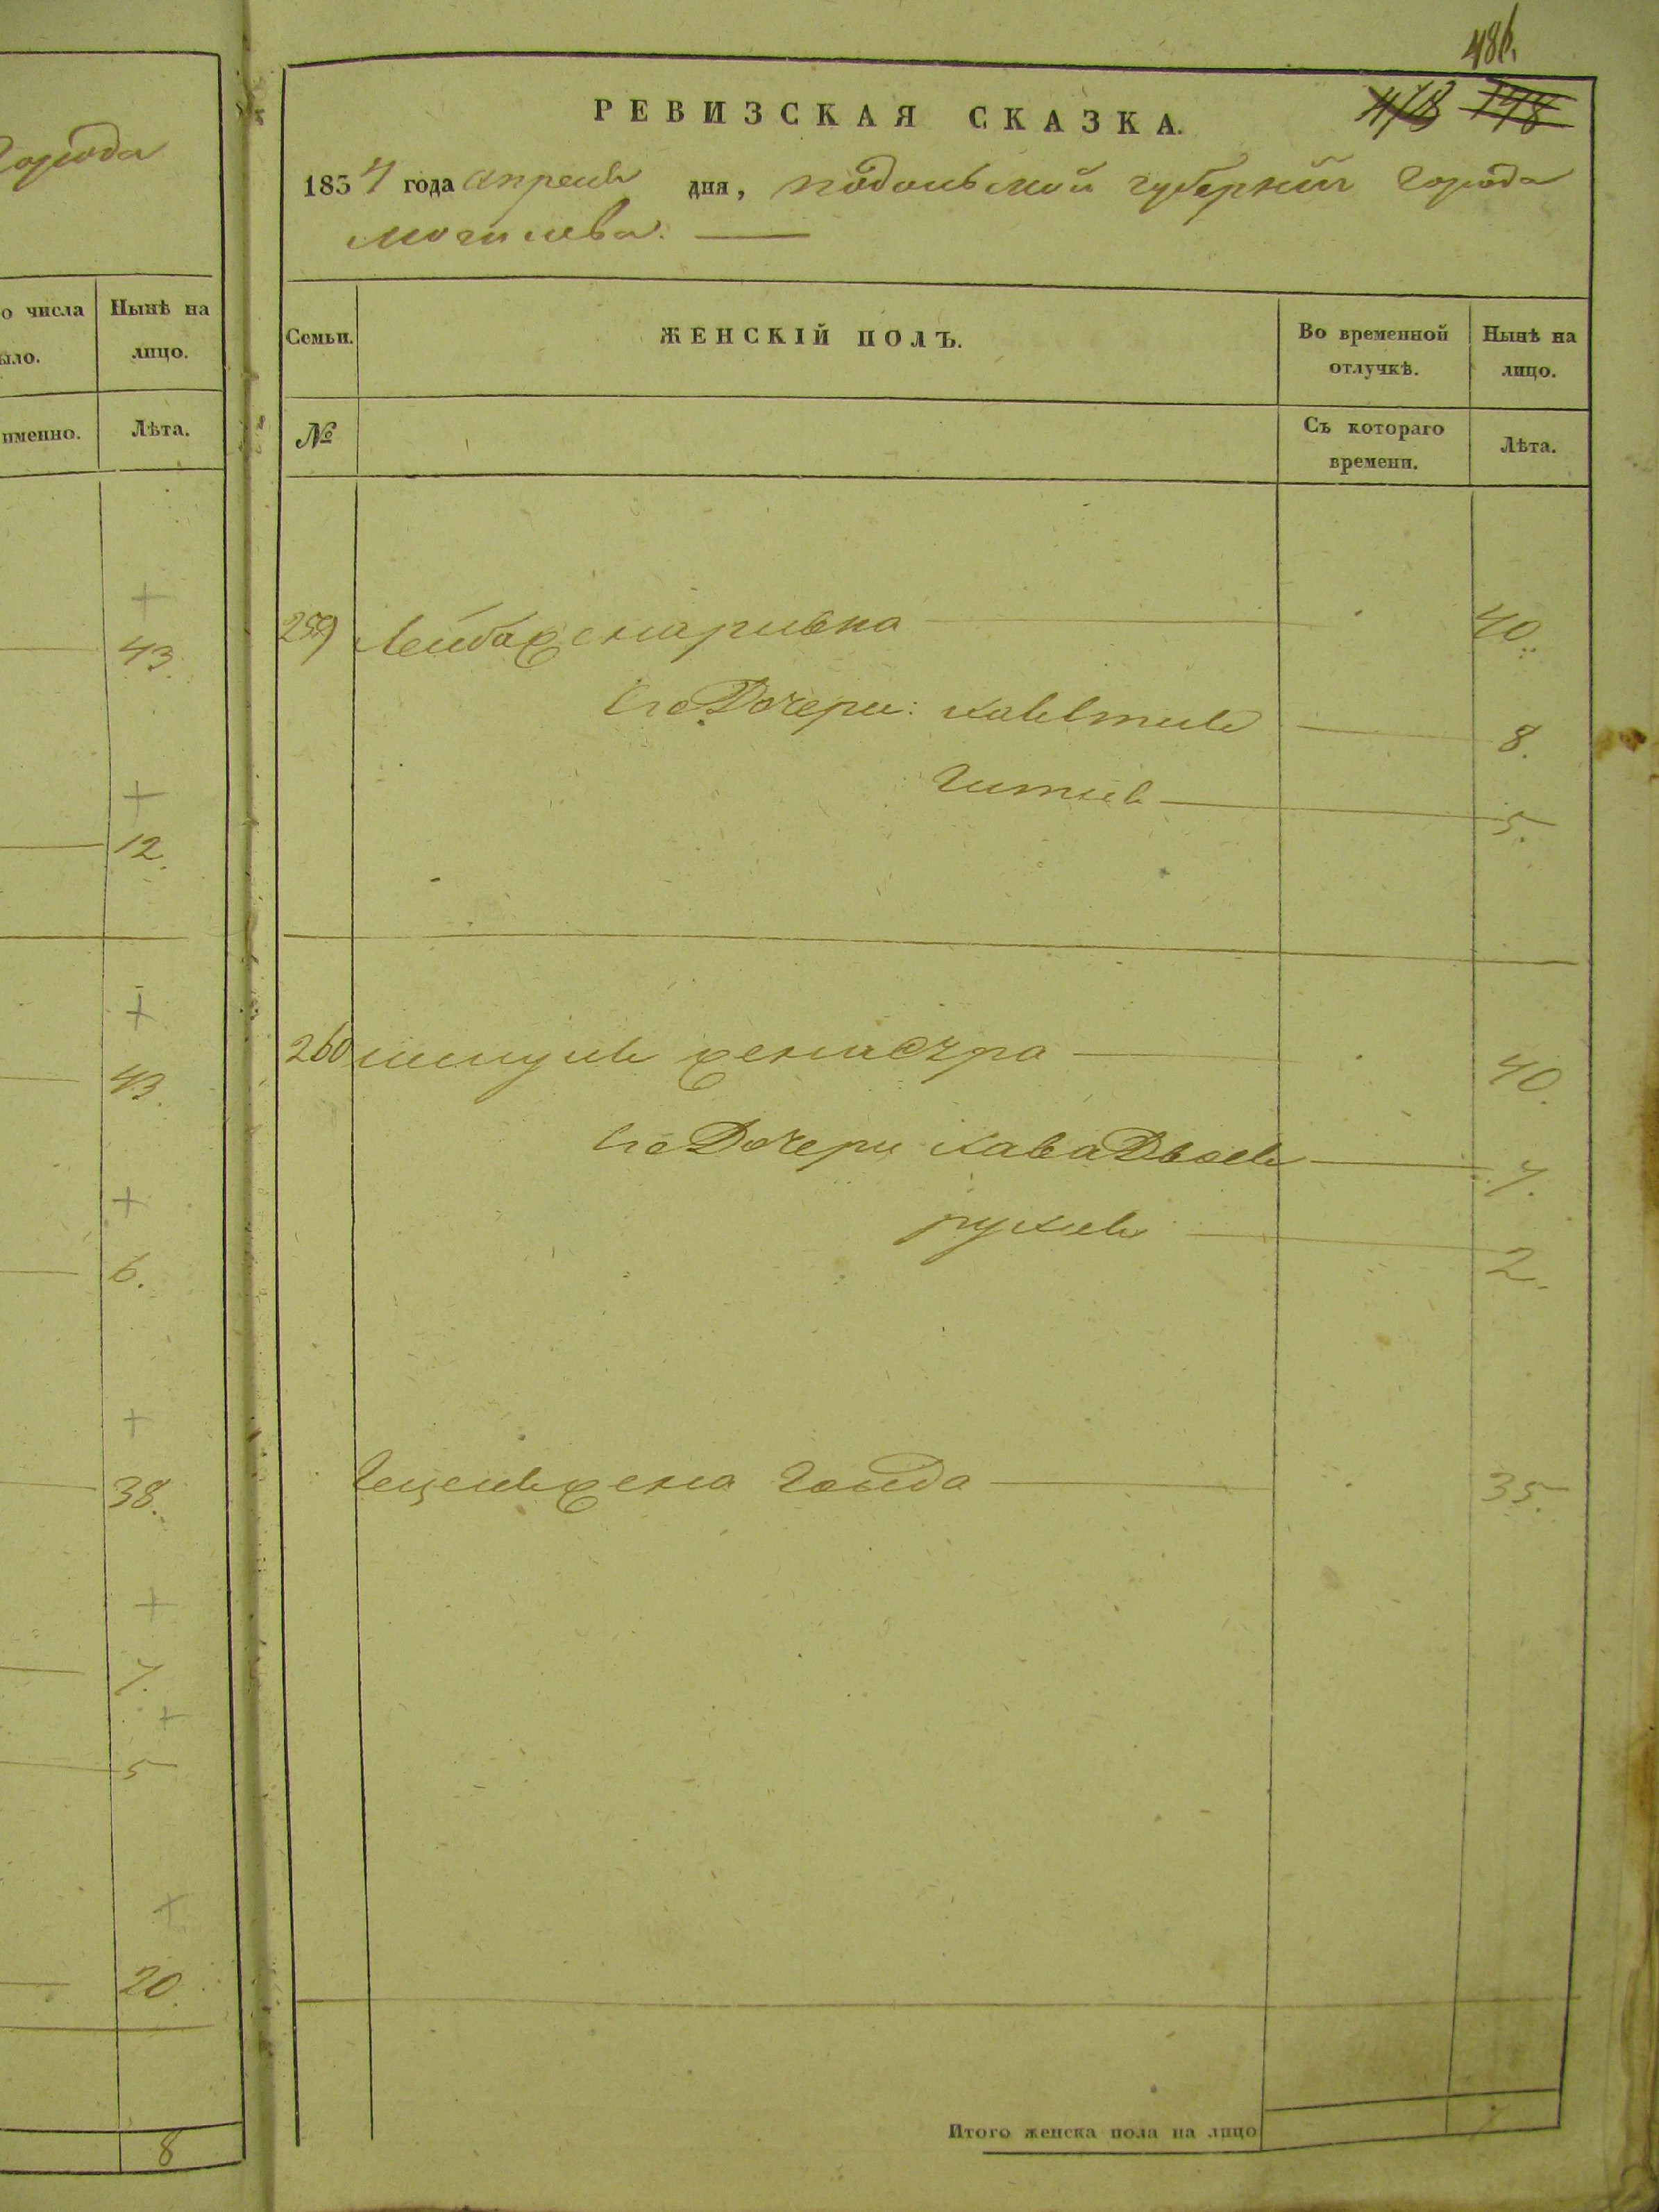 Города
о числа
ыло.
Нынѣ на
лицо.
именно.
Лѣта.
43.
12.
43.
6.
38.
7.
5
20.
8
486.
РЕВИЗСКАЯ СКАЗКА.
178
1834 года апреля дня, подольской губернии Города
могилева.
Семьи.
ЖЕНСКІЙ ПОЛЪ.
Во временной
отлучкѣ.
Нынѣ на
лицо.
№
Съ котораго
времени.
Лѣта.
259 Лейба жена ривка 40.
Его Дочери: 8.
Гитля 5.
260 жена Сура 40.
Его Дочери хава Двося 7.
рухля 2.
жена Голда 35.
Итого женска пола на лицо 7